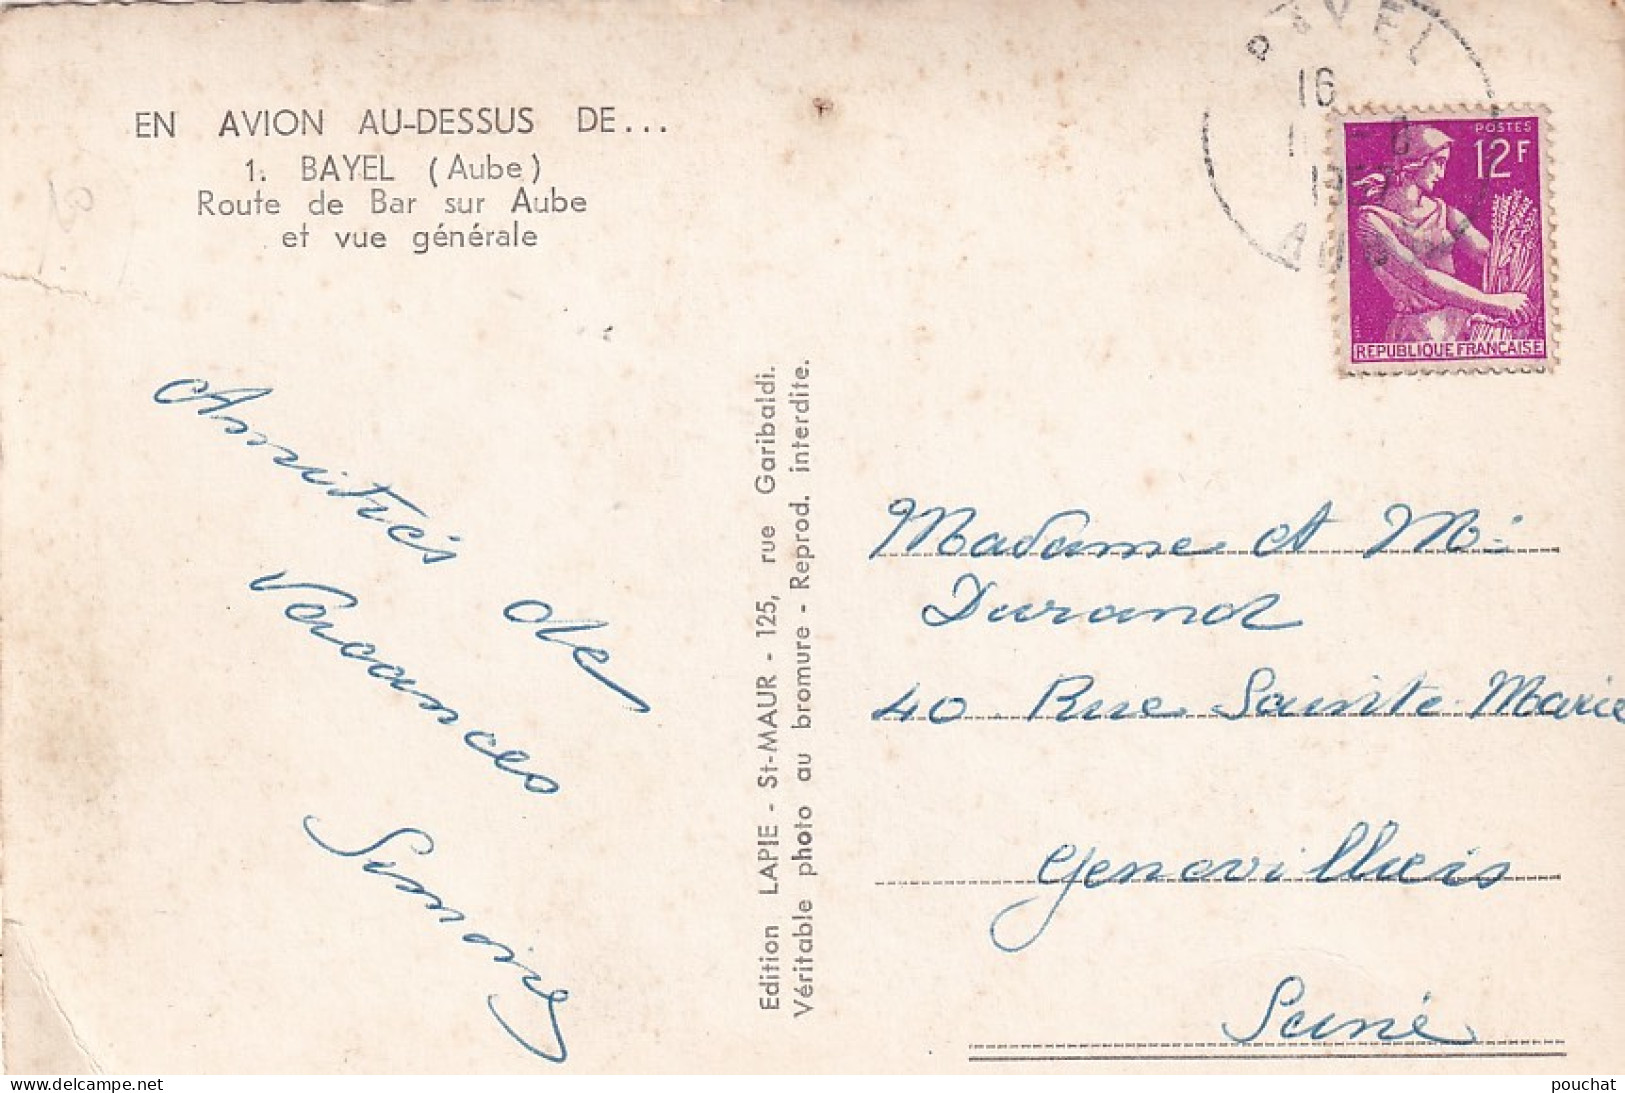 EN AVION AU-DESSUS DE...
1. BAYEL (Aube)
Route de Bar sur Aube
et vue générale
Amitiés de
Vacances
Edition LAPIE - St-MAUR - 125, rue Garibaldi.
Véritable photo au bromure - Reprod. interdite.
BAYEL
16
AUBE
POSTES
12F
REPUBLIQUE FRANÇAISE
Madame et Mr
Durand
40 Rue Sainte Marie
Genevilliers
Seine
www.delcampe.net
pouchat